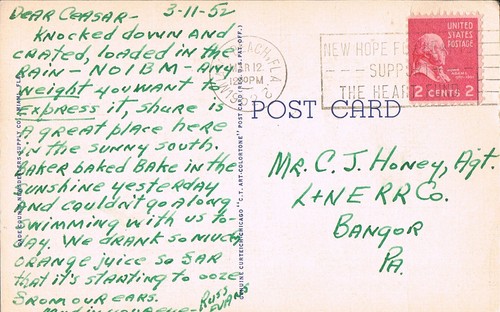 Dear Ceasar- 3-11-52
Knocked down and
crated, loaded in the
rain - NOIBM - any
weight you want to
express it, this is
a great place here
in the sunny south.
Baker baked Bake in the
sunshine yesterday
and couldn't go along
swimming with us to-
day. We drank so much
orange juice so far
that it's starting to ooze
from our ears.
Russ
Evans
POST CARD
GENUINE CURTEICH-CHICAGO "C.T. ART-COLORTONE" POST CARD (REG. U.S. PAT. OFF.)
BEACH, FLA.
MAR 12
1952
NEW HOPE
SUPPORT
THE HEART FUND
UNITED
STATES
POSTAGE
2 CENTS 2
Mr. C. J. Honey, Agt.
L+NE RR Co.
Bangor
Pa.